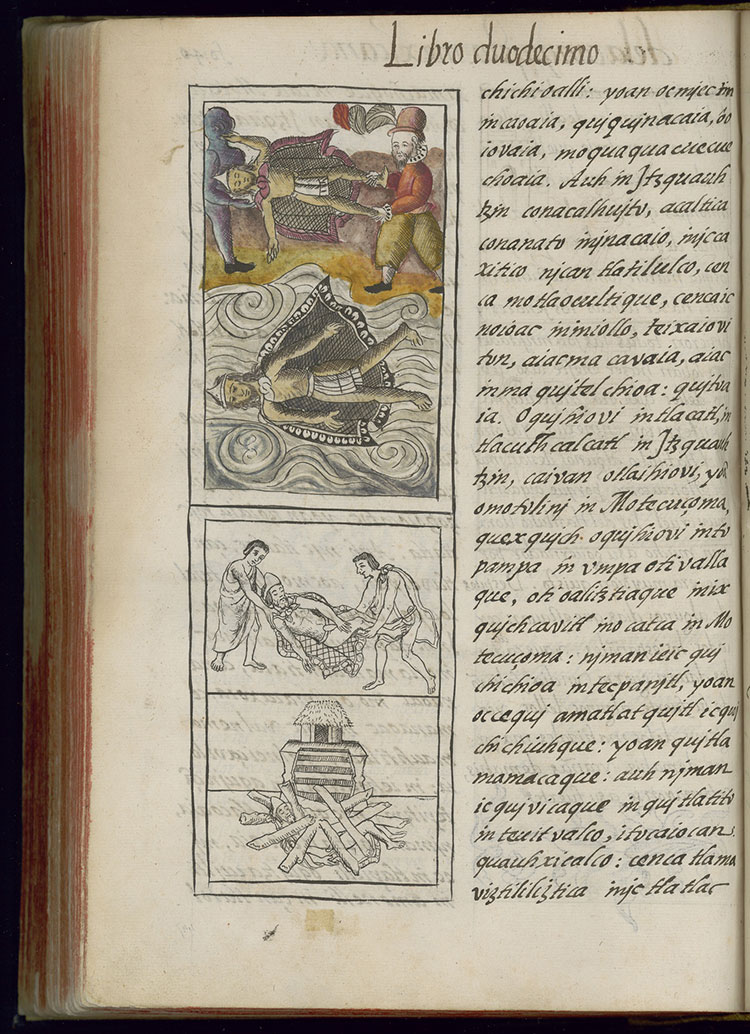 Libro duodecimo
chichioalli: yoan oc mjec in
in caoaia, qujqujnacaia, ho
iovaia, moquaquacuecue
choaia. Auh in Jtzquauh
tzin conacalhujto, acaltica
conanato injnacaio, injc ca
xitico njcan tlatilulco, cen
ca motlaocultique, cencaic
noioac ininiollo, teixaiovi
tvn, aiac ma cavaia, aiac
inma qujtelchioa: qujtva
ia. Oqujhiovi in tlacatl, in
tlacuchcalcatl in Jtzquauh
tzin, caivan otlaihiovi, yoã
omotolinj in Motecuçoma,
quexqujch oqujhiovi intv
pampa in vmpa otivalla
que, otioaliztiaque in ix
qujchcavitl in ocatca in Mo
tecuçoma: njman ie ic quj
chichioa in tecpanjtl, yoan
occequj amatlatqujtl ic quj
chichiuhque: yoan qujtla
mamacaque: auh njman
ic qujvicaque in qujtlatitv
in teuitvalco, itvcaiocan
quauhxicalco: cenca tlama
viztililiztica injc tlatlac